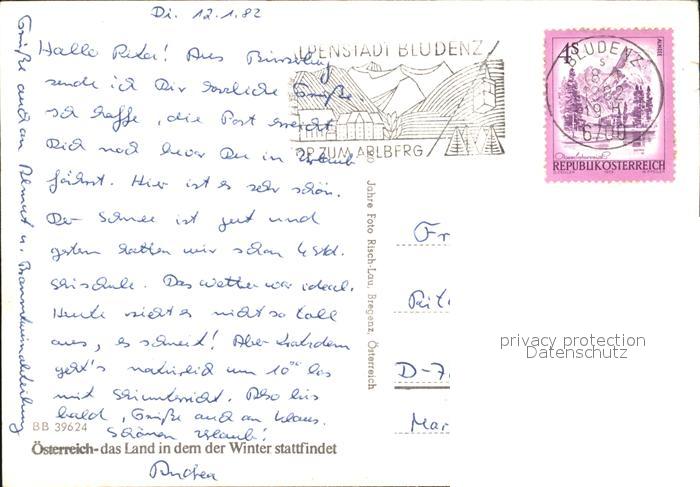 Di. 12.1.82
Hallo Rita! Aus Bürserberg
sende ich Dir herzliche Grüße.
Ich hoffe, die Post erreicht
Dich noch bevor Du in Urlaub
fährst. Hier ist es sehr schön.
Der Schnee ist gut und
gestern hatten wir schon 4 Std.
Skischule. Das Wetter war ideal.
Heute sieht es nicht so toll
aus, es schneit! Aber trotzdem
geht's natürlich um 10⁰⁰ los
mit Skiunterricht. Also bis
bald, Grüße auch an Klaus.
Schönen Urlaub!
Andrea
Grüße auch an u.
BB 39624
Österreich - das Land in dem der Winter stattfindet
Jahre Foto Risch-Lau, Bregenz, Österreich
LPENSTADT BLUDENZ
OR ZUM ARLBERG
BLUDENZ
6700
4S
ALMSEE
REPUBLIK ÖSTERREICH
Fr
D-7
Mar
privacy protection
Datenschutz